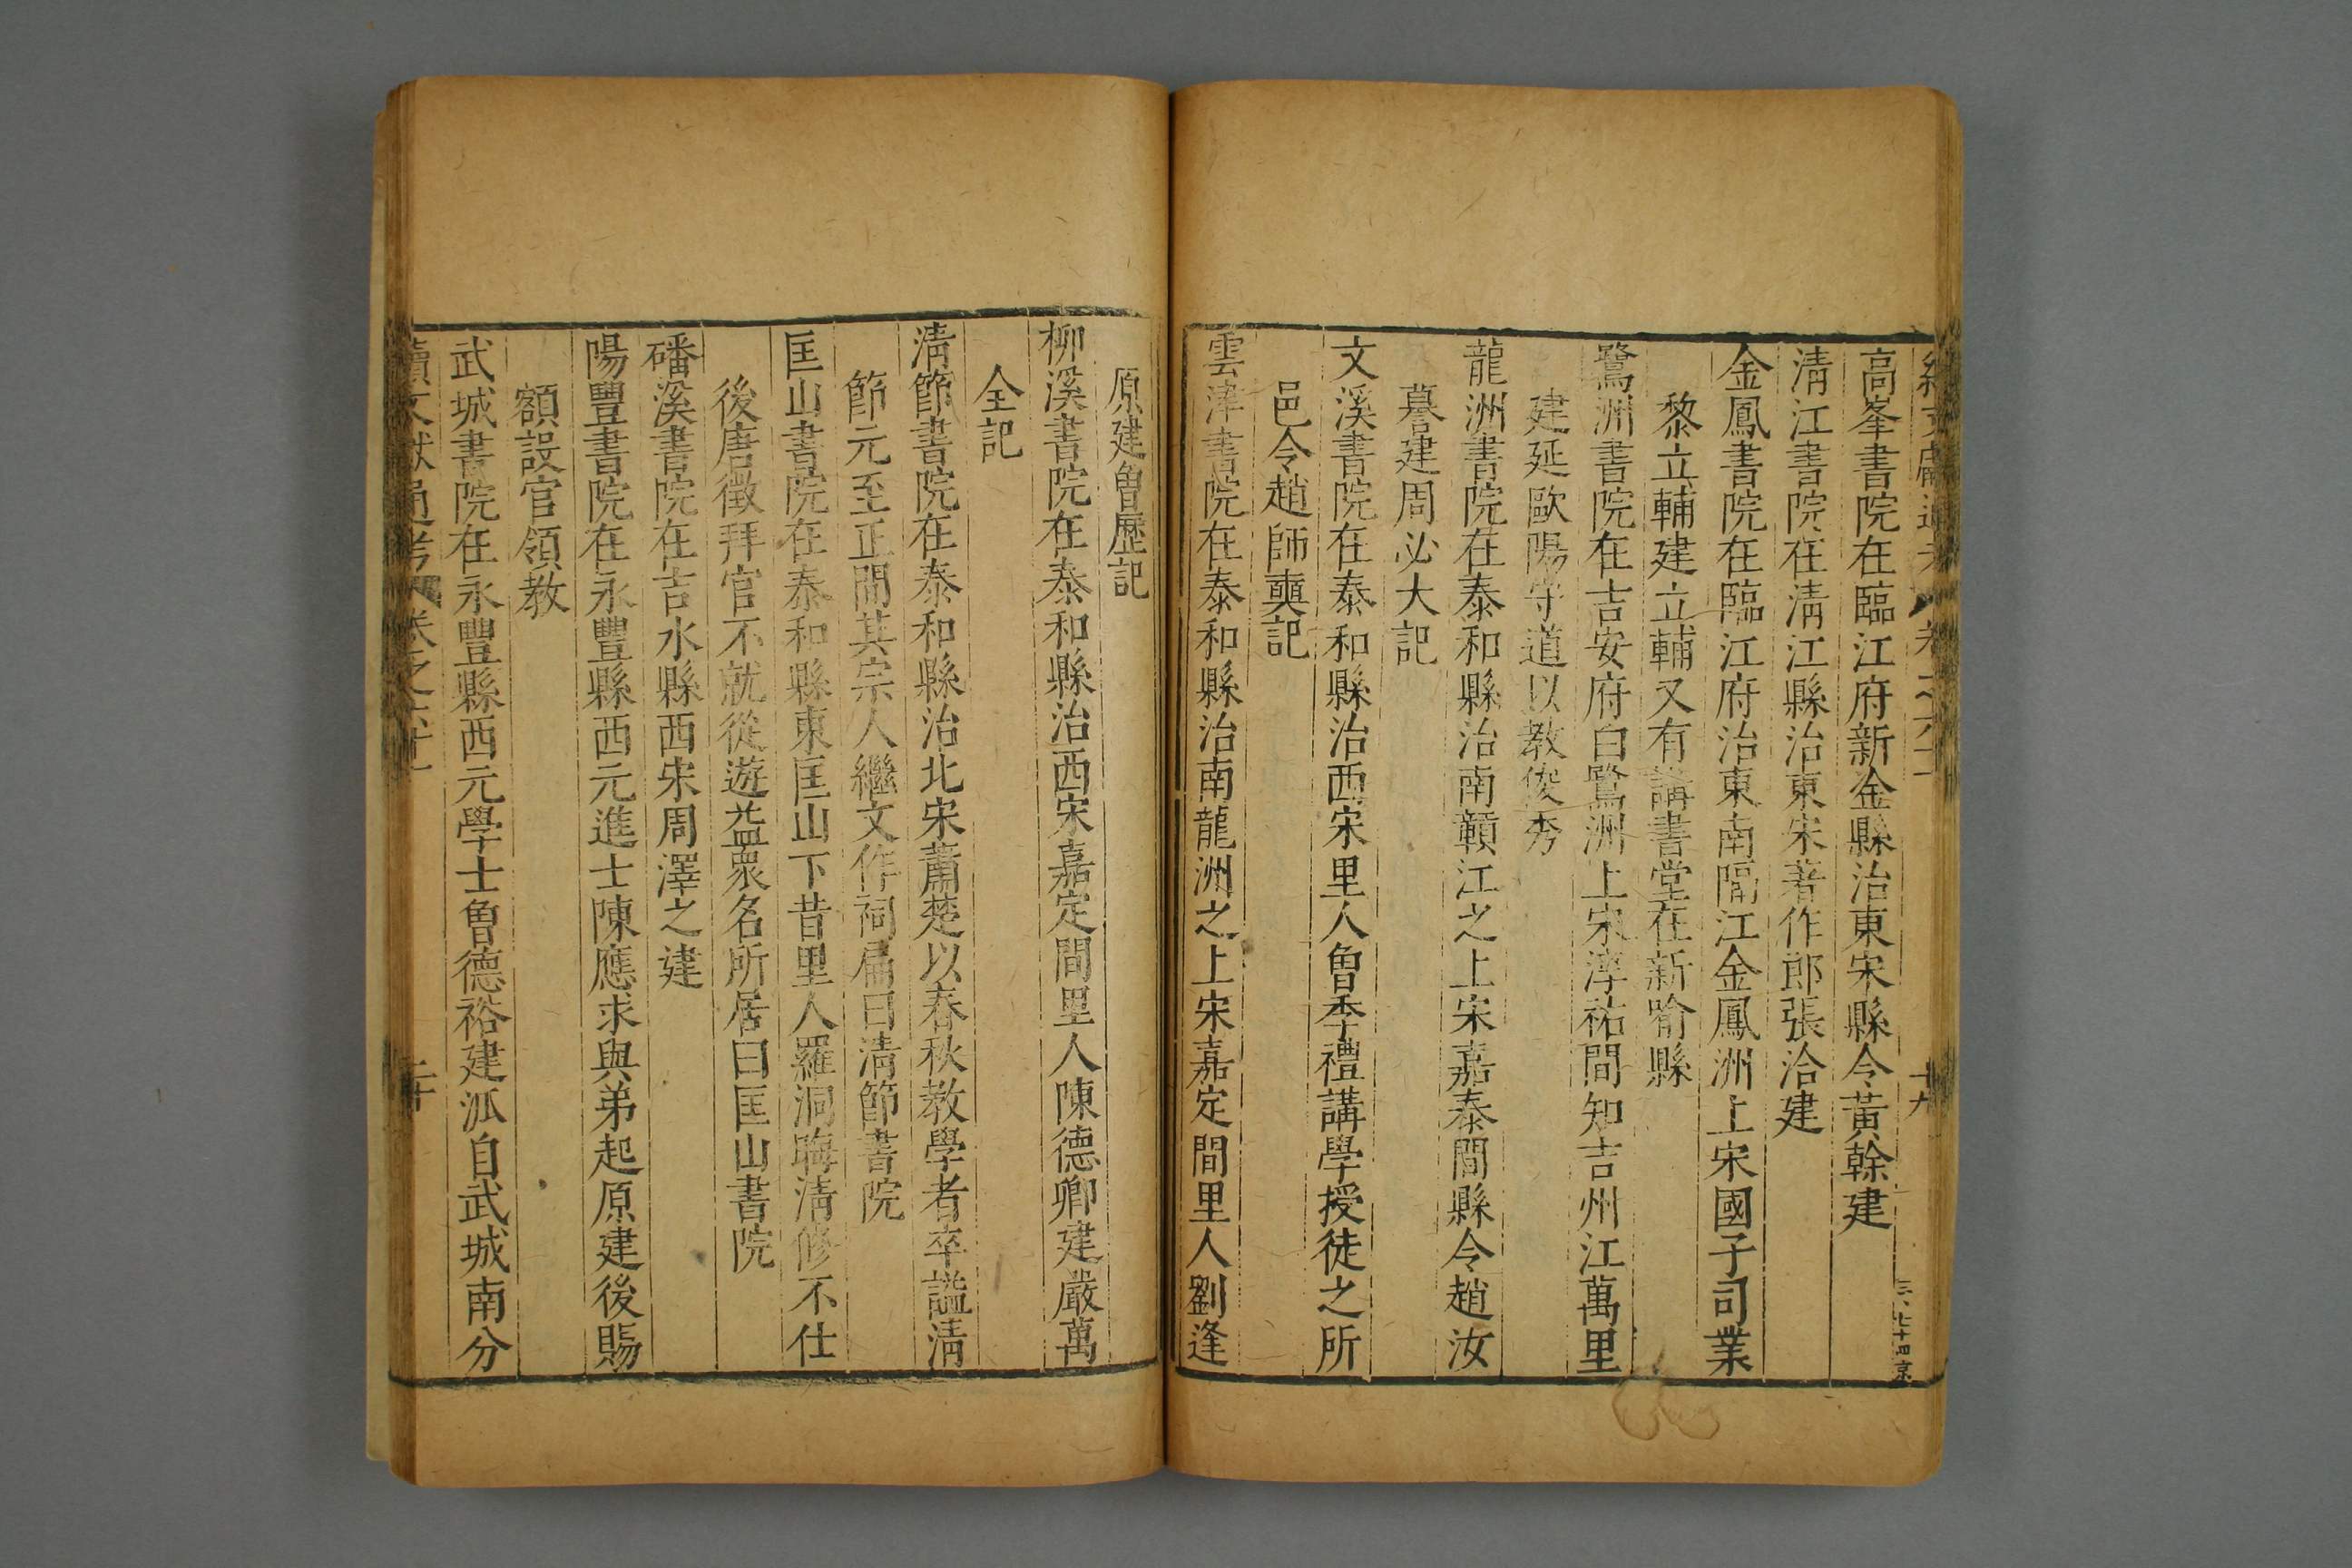 高峯書院在臨江府新金縣治東宋縣令黃榦建
清江書院在清江縣治東宋著作郎張洽建
金鳳書院在臨江府治東南隔江金鳳洲上宋國子司業
黎立輔建立輔又有講書堂在新喻縣
鷺洲書院在吉安府白鷺洲上宋淳祐間知吉州江萬里
建延歐陽守道以教俊秀
龍洲書院在泰和縣治南贑江之上宋嘉泰間縣令趙汝
謩建周必大記
文溪書院在泰和縣治西宋里人魯季禮講學授徒之所
邑令趙師奭記
雲津書院在泰和縣治南龍洲之上宋嘉定間里人劉逢
原建曾歷記
柳溪書院在泰和縣治西宋嘉定間里人陳德卿建嚴萬
全記
清節書院在泰和縣治北宋蕭楚以春秋教學者卒謚清
節元至正間其宗人繼文作祠扁曰清節書院
匡山書院在泰和縣東匡山下昔里人羅洞晦清修不仕
後唐徵拜官不就從遊益衆名所居曰匡山書院
磻溪書院在吉水縣西宋周澤之建
陽豐書院在永豐縣西元進士陳應求與弟起原建後賜
額設官領教
武城書院在永豐縣西元學士魯德裕建泒自武城南分
續文獻通考 卷之六十一 二十